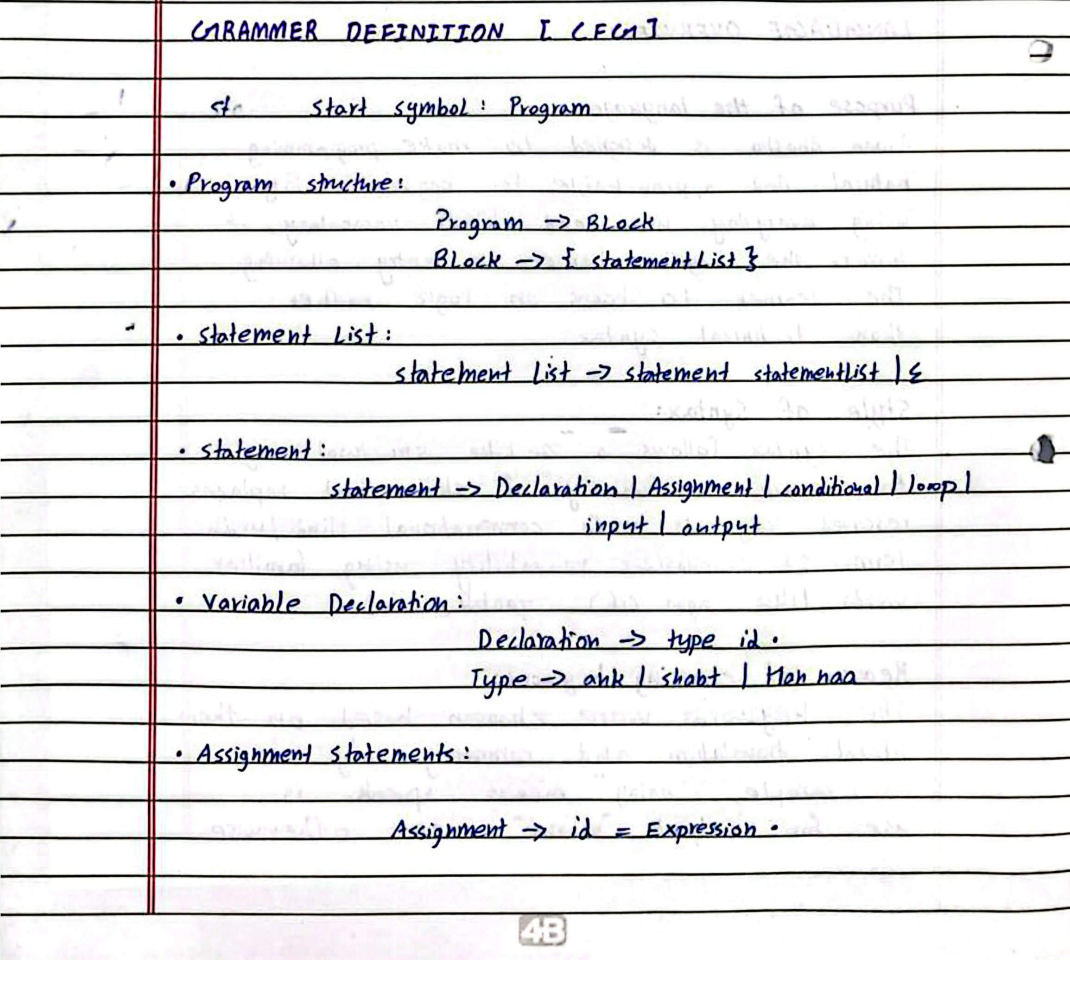 GRAMMER DEFINITION [CFG]
st start symbol: Program
• Program structure:
Program -> Block
Block -> { statementList }
• Statement List:
statement List -> statement statementList | ε
• statement:
statement -> Declaration | Assignment | conditional | loop |
input | output
• Variable Declaration:
Declaration -> type id.
Type -> ank | shabt | Han naa
• Assignment statements:
Assignment -> id = Expression.
4B